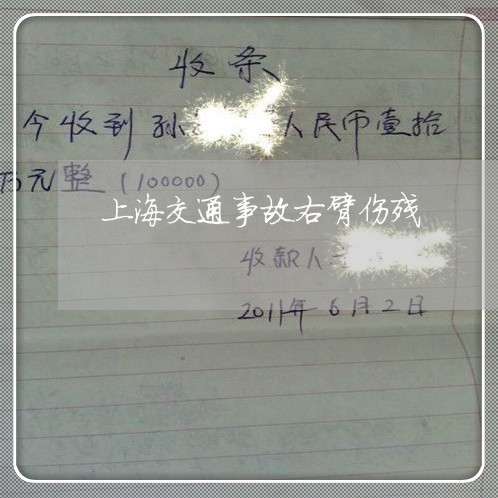 收条
今收到孙 人民币壹拾
万元整(100000)
上海交通事故右臂伤残
收款人
2011年6月2日